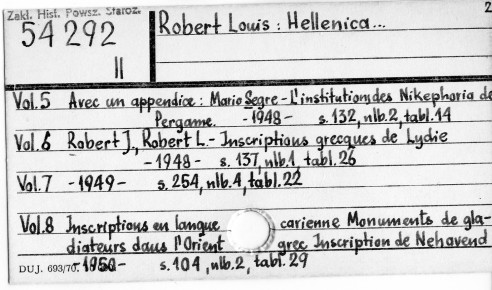 Zakł. Hist. Powsz. Staroż.
2
54 292
II
Robert Louis : Hellenica...
Vol.5 Avec un appendice : Mario Segre - L'institution des Nikephoria de
Pergame. - 1948 - s. 132, nlb. 2, tabl. 14
Vol.6 Robert J., Robert L. - Inscriptions grecques de Lydie
- 1948 - s. 137, nlb. 1, tabl. 26
Vol.7 - 1949 - s. 254, nlb. 4, tabl. 22
Vol.8 Inscriptions en langue carienne Monuments de gla-
diateurs daus l'Orient grec Inscription de Nehavend
DUJ. 693/70. - 1950 - s. 104, nlb. 2, tabl. 29